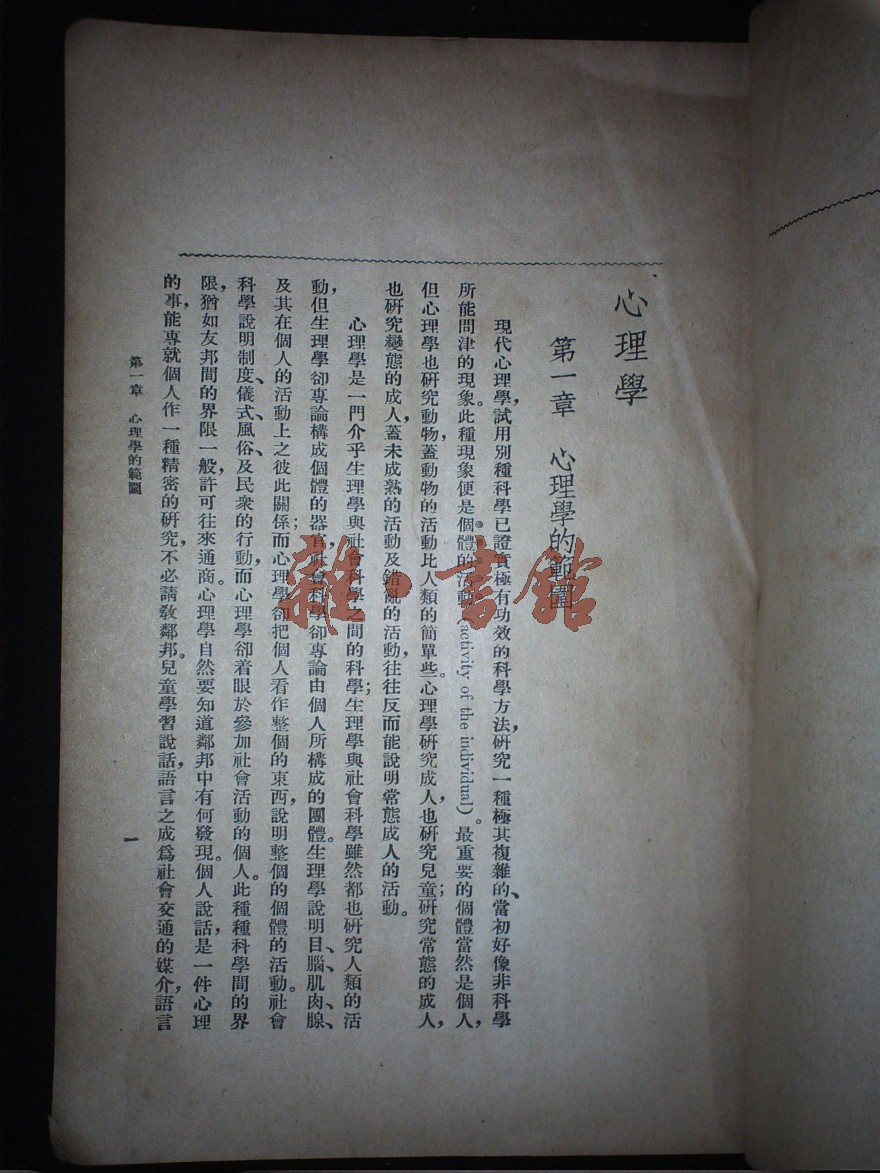 心理學
第一章 心理學的範圍
現代心理學，試用別種科學已證實極有功效的科學方法，研究一種極其複雜的、當初好像非科學
所能問津的現象。此種現象便是個體的活動（activity of the individual）。最重要的個體當然是個人，
但心理學也研究動物，蓋動物的活動比人類的簡單些。心理學研究成人，也研究兒童；研究常態的成人，
也研究變態的成人，蓋未成熟的活動及錯亂的活動，往往反而能說明常態成人的活動。
心理學是一門介乎生理學與社會科學之間的科學；生理學與社會科學雖然都也研究人類的活
動，但生理學卻專論構成個體的器官，社會科學卻專論由個人所構成的團體。生理學說明目、腦、肌肉、腺、
及其在個人的活動上之彼此關係；而心理學卻把個人看作整個的東西，說明整個的個體的活動。社會
科學說明制度、儀式、風俗、及民衆的行動，而心理學卻着眼於參加社會活動的個人。此種種科學間的界
限，猶如友邦間的界限一般，許可往來通商。心理學自然要知道鄰邦中有何發現。個人說話，是一件心理
的事，能專就個人作一種精密的研究，不必請教鄰邦。兒童學習說話，語言之成爲社會交通的媒介，語言
第一章 心理學的範圍
一
雜·書館